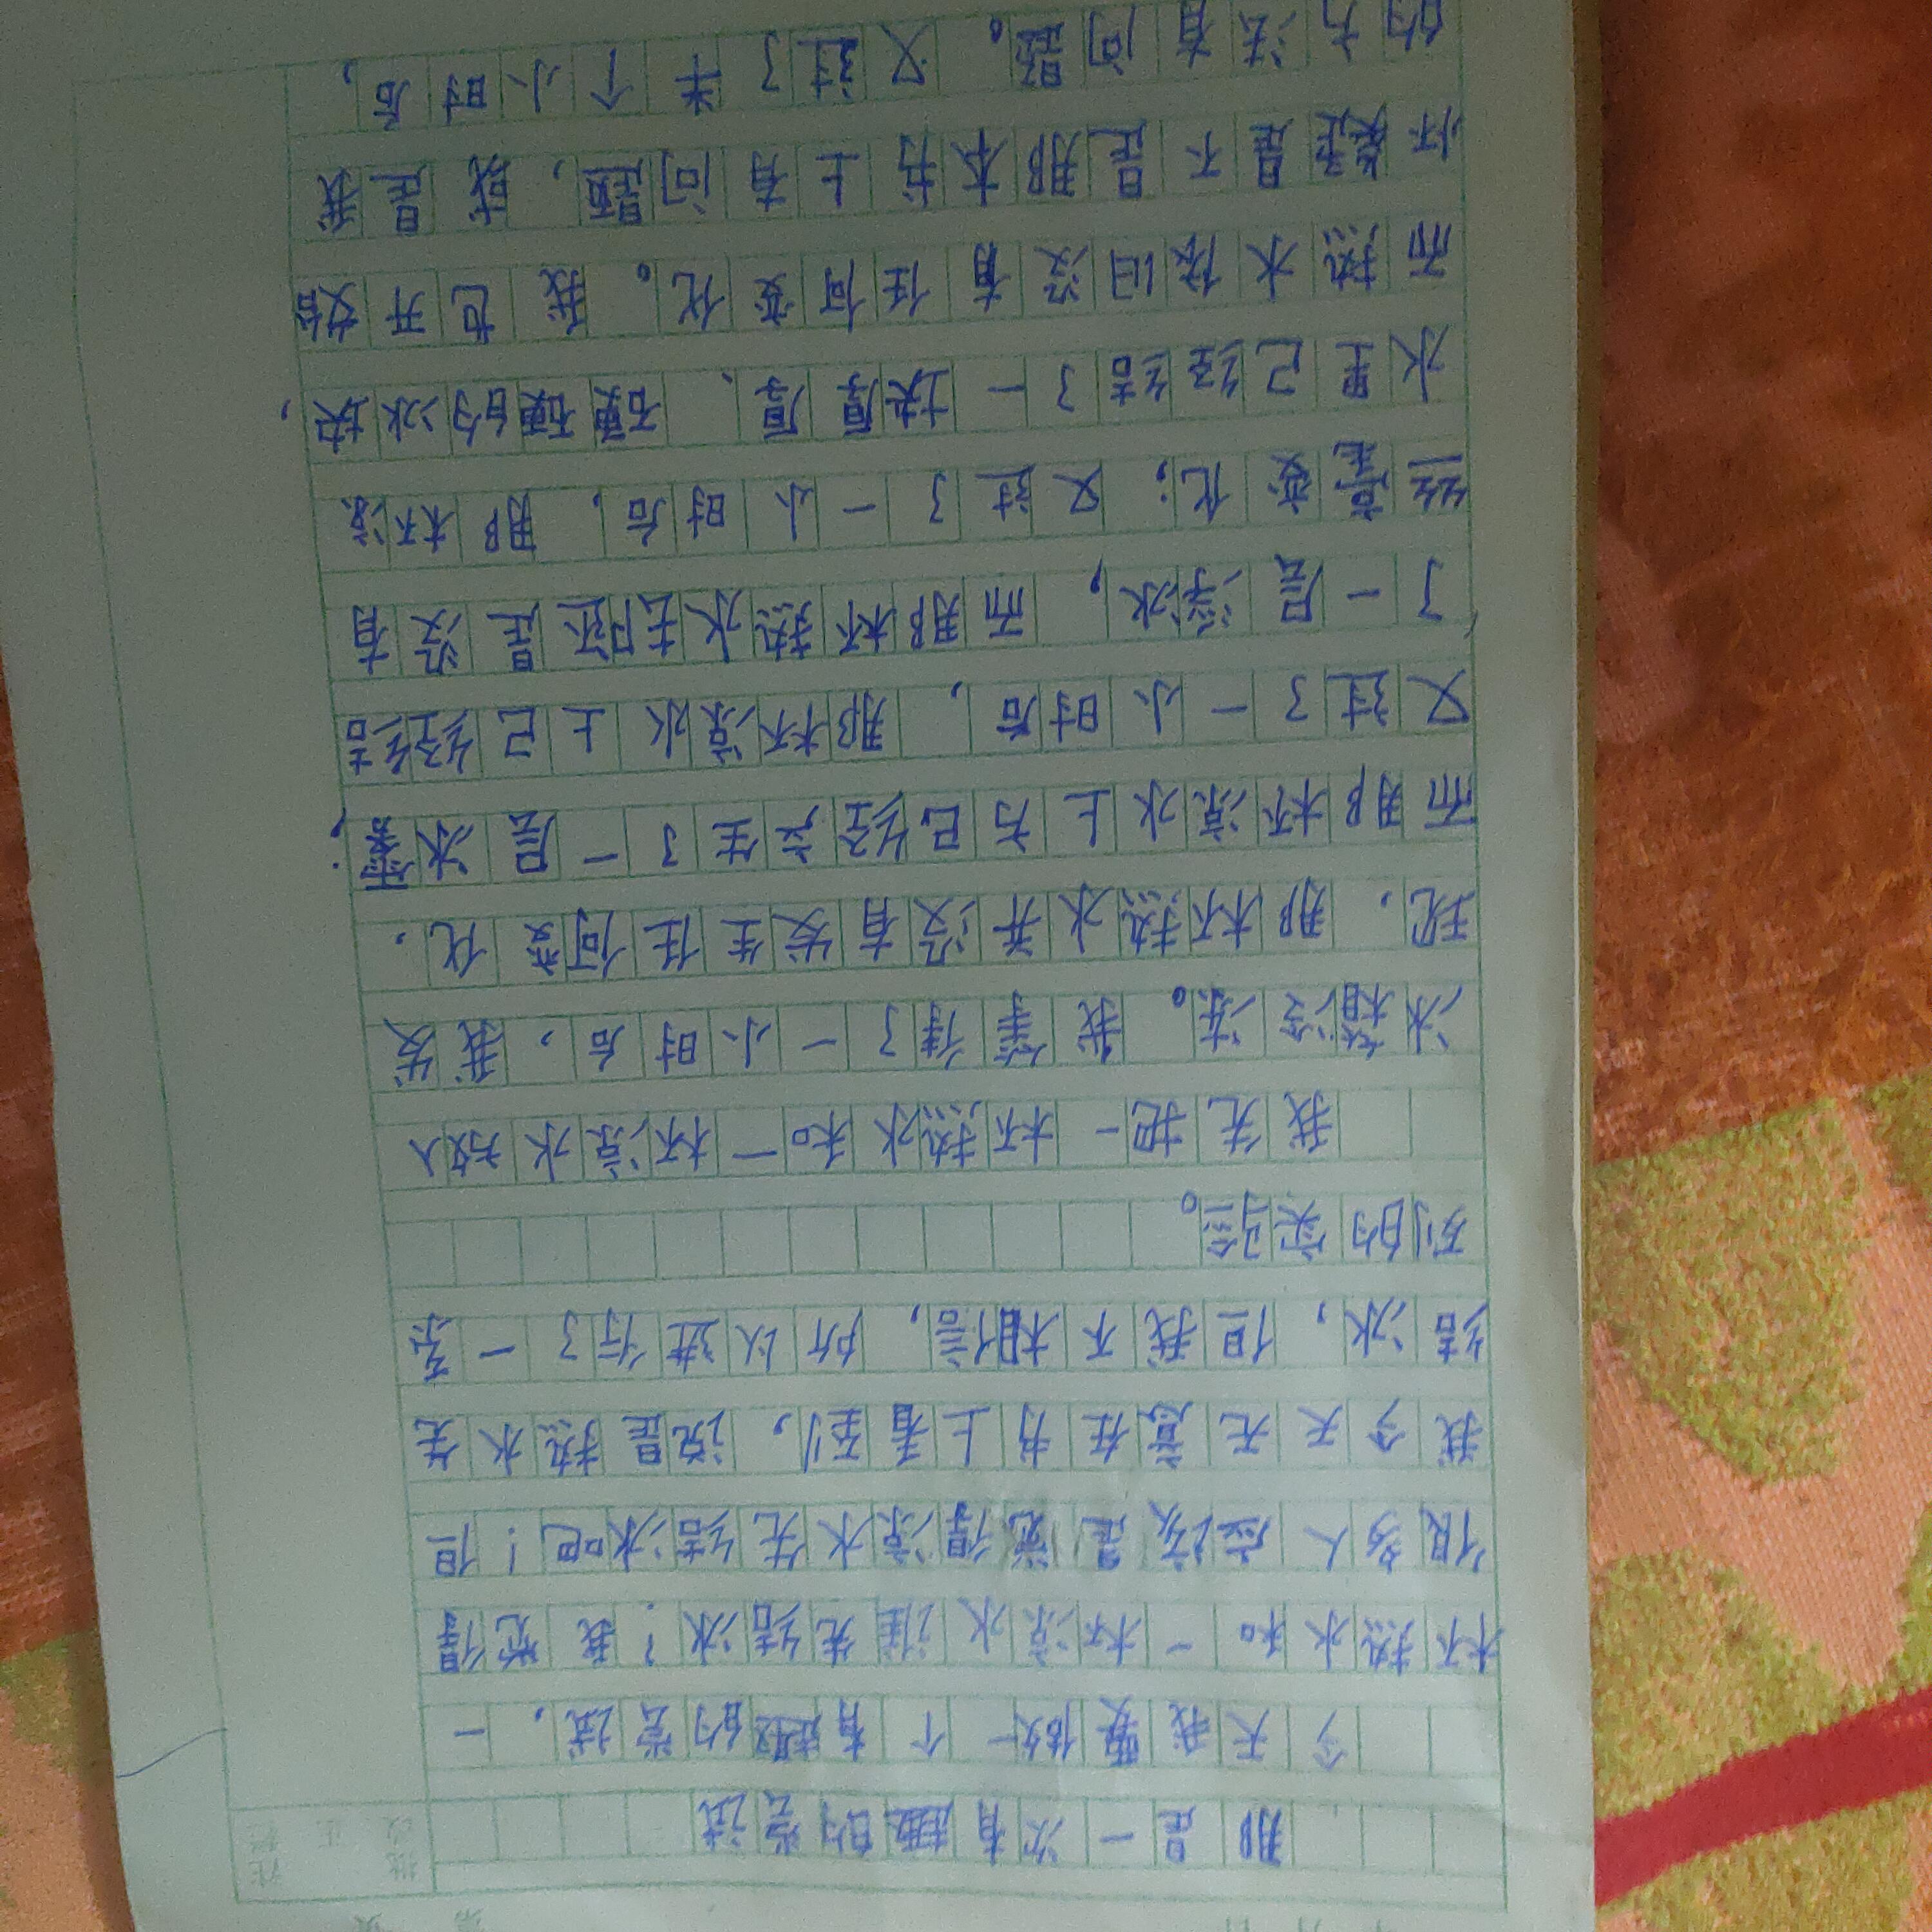 那是一次有趣的尝试
今天我要做一个有趣的尝试，一
杯热水和一杯凉水谁先结冰？我觉得
很多人应该是觉得凉水先结冰吧！但
我今天无意在书上看到，说是热水先
结冰，但我不相信，所以进行了一系
列的实验。
我先把一杯热水和一杯凉水放入
冰箱冷冻。我等待了一小时后，我发
现，那杯热水并没有发生任何变化，
而那杯凉水上方已经产生了一层冰雾；
又过了一小时后，那杯凉水上已经结
了一层浮冰，而那杯热水却还是没有
丝毫变化；又过了一小时后，那杯凉
水里已经结了一块厚厚、硬硬的冰块，
而热水依旧没有任何变化。我也开始
怀疑是不是那本书上有问题，或是我
的方法有问题。又过了半个小时后，
批改